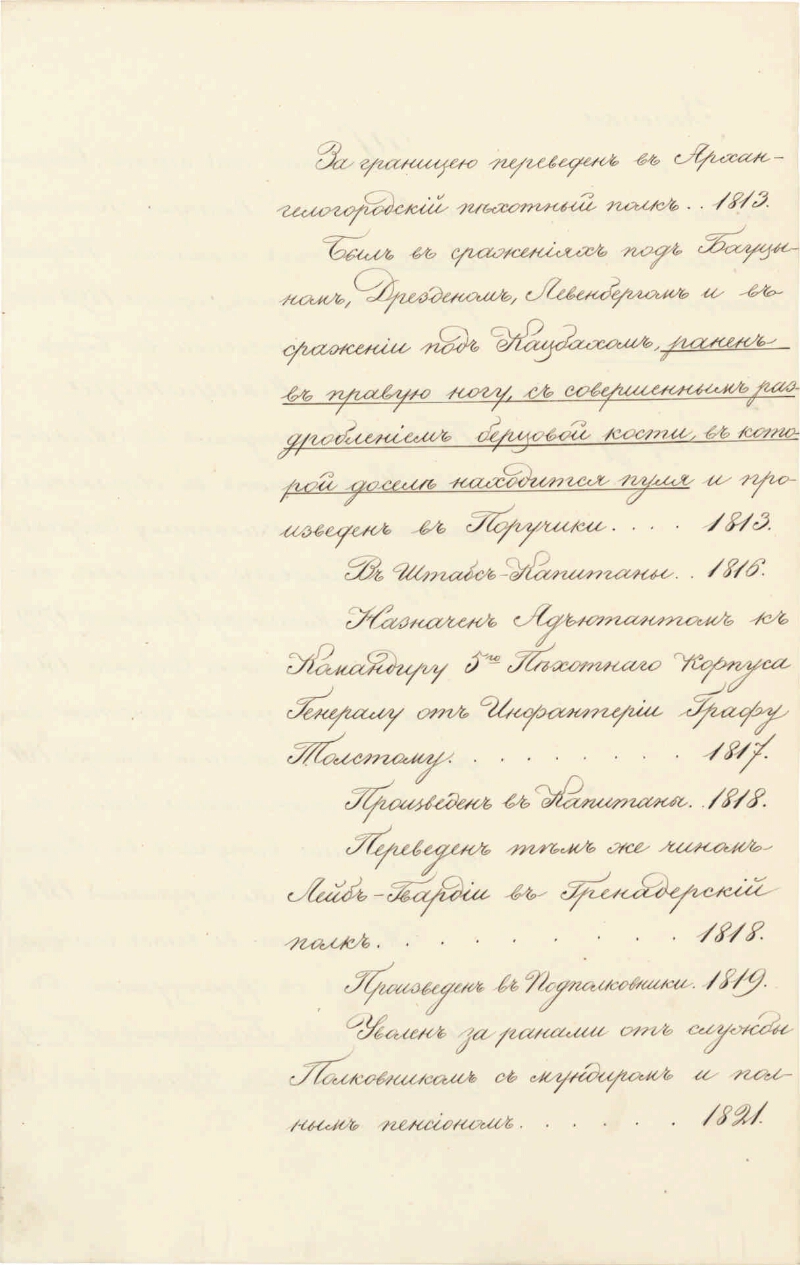 За границею переведенъ въ Архан-
гелогородскій пѣхотный полкъ . . 1813.
Былъ въ сраженіяхъ подъ Бауцы-
номъ, Дрезденомъ, Левенбергомъ и въ
сраженіи подъ Кацбахомъ, раненъ
въ правую ногу, съ совершеннымъ раз-
дробленіемъ берцовой кости, въ кото-
рой доселѣ находится пуля и про-
изведенъ въ Поручики . . . . 1813.
Въ Штабсъ-Капитаны . . 1816.
Назначенъ Адъютантомъ къ
Командиру 5го Пѣхотнаго Корпуса
Генералу отъ Инфантеріи Графу
Толстому . . . . . . . . 1817.
Произведенъ въ Капитаны . . 1818.
Переведенъ тѣмъ же чиномъ
Лейбъ-Гвардіи въ Гренадерскій
полкъ . . . . . . . . . 1818.
Произведенъ въ Подполковники . 1819.
Уволенъ за ранами отъ службы
Полковникомъ съ мундиромъ и пол-
нымъ пенсіономъ . . . . . . 1821.